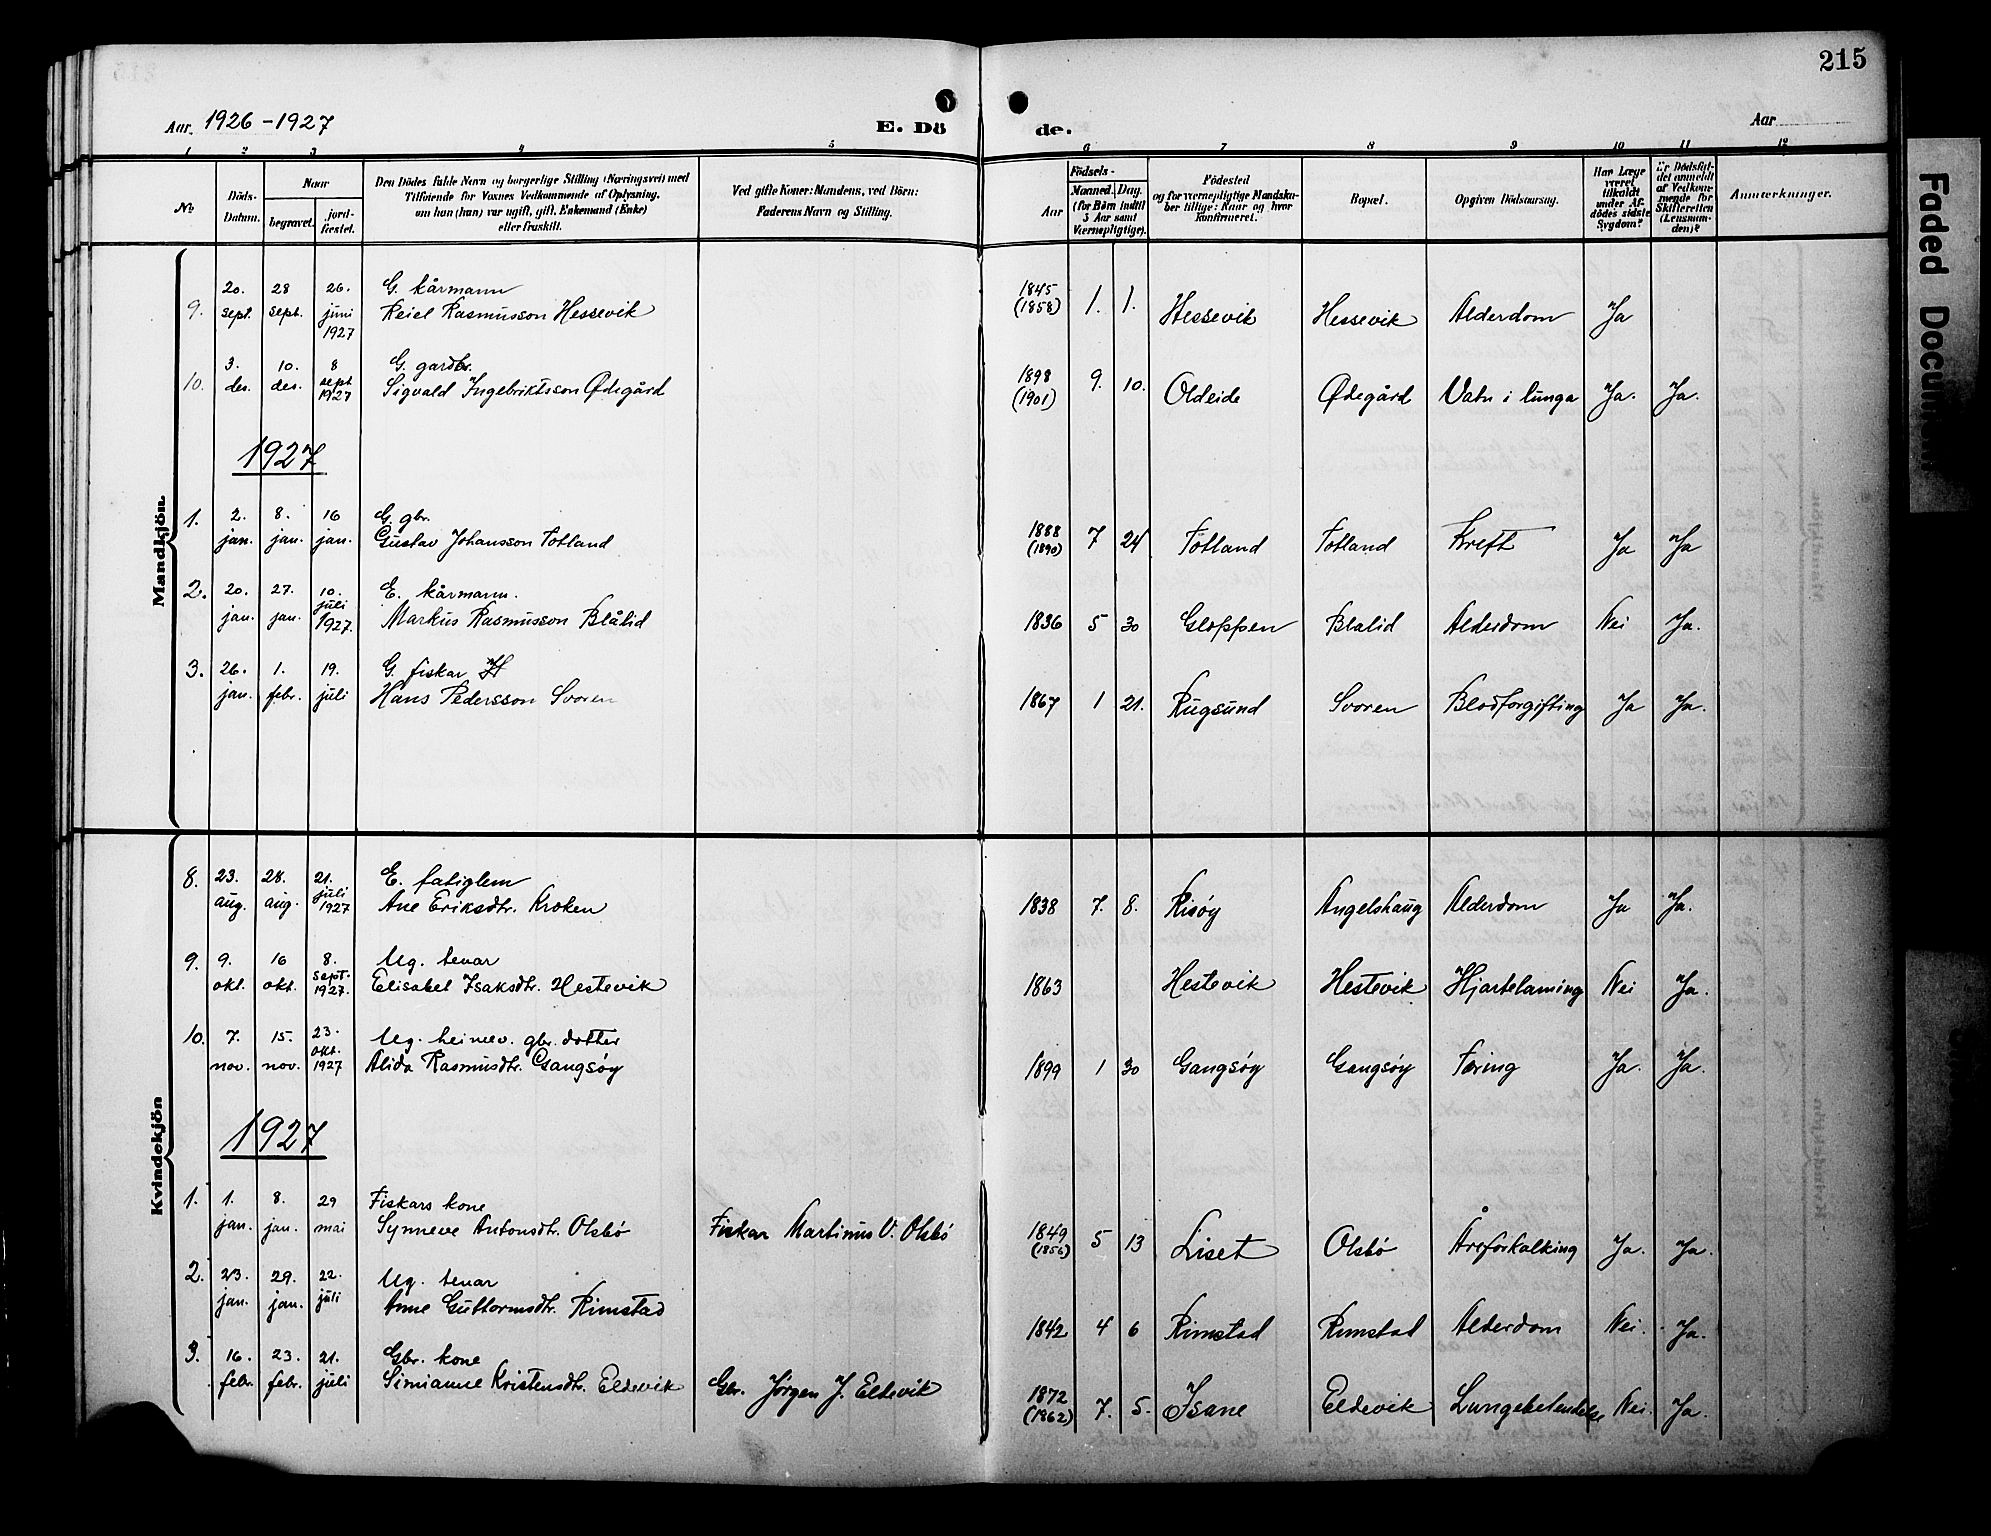 215
Aar. 1926-1927
E. Dö
de.
Aar
1 2 3 4 5 6 7 8 9 10 11 12
№
Döds-
Datum.
Naar
begravet.
jord-
fæstet.
Den Dödes fulde Navn og borgerlige Stilling (Næringsvei) med
Tilföiende for Voxnes Vedkommende af Oplysning,
om han (hun) var ugift, gift, Enkemand (Enke)
eller fraskilt.
Ved gifte Koner: Mandens, ved Börn:
Faderens Navn og Stilling.
Födsels-
Aar
Maaned. Dag.
(for Börn indtil
5 Aar samt
Værnepligtige).
Födested
og for værnepligtige Mandska-
ber tillige: Naar og hvor
konfirmeret.
Bopæl.
Opgiven Dödsaarsag.
Har Læge
været
tilkaldt
under Af-
dødes sidste
Sygdom?
Er Dödsfal-
det anmeldt
af Vedkom-
mende for
Skifteretten
(Lensman-
den)?
Anmærkninger.
Mandkjön.
9. 20. sept. 28 sept. 26. juni 1927 G. kårmann
Reiel Rasmusson Hessevik 1845 (1858) 1. 1. Hessevik Hessevik Alderdom Ja
10. 3. des. 10. des. 8 sept 1927 G. gardbr.
Sigvald Ingebriktsson Ødegård 1898 (1901) 9. 10. Oldeide Ødegård Vatn i lunga Ja. Ja.
1927
1. 2. jan. 8. jan. 16 jan. G. gbr.
Gustav Johansson Totland 1888 (1890) 7 24 Totland Totland Kreft Ja Ja
2. 20. jan. 27. jan. 10. juli 1927. E. kårmann.
Markus Rasmusson Blålid 1836 5 30 Gloppen Blalid Alderdom Nei Ja.
3. 26. jan. 1. febr. 19. juli G. fiskar
Hans Pedersson Svoren 1867 1 21. Rugsund Svoren Blodforgifting Ja Ja.
Kvindekjön
8. 23. aug. 28. aug. 21. juli 1927 E. fatiglem
Ane Eriksdtr. Kroken 1838 7. 8. Risøy Angelshaug Alderdom Ja Ja.
9. 9. okt. 16 okt. 8. sept. 1927. Ug. tenar
Elisabet Isaksdtr. Hestevik 1863 Hestevik Hestevik Hjartelaming Nei Ja.
10. 7. nov. 15. nov. 23. okt. 1927 Ug. heimev. gbr. dotter
Alida Rasmusdtr. Gangsøy 1899 1 30 Gangsøy Gangsøy Tæring Ja. Ja.
1927
1. 1. jan. 8. jan. 29 mai Fiskars kone
Synneve Antonsdtr. Olsbø Fiskar Martinus V. Olsbø 1849 (1856) 5 13 Liset Olsbø Åreforkalking Ja. Ja.
2. 23. jan. 29. jan. 22. juli Ug. tenar
Anne Guttormsdtr. Rimstad 1842 4 6 Rimstad Rimstad Alderdom Nei. Ja.
3. 16. febr. 23. febr. 21. juli Gbr. kone
Simianne Kristensdtr. Eldevik Gbr. Jørgen J. Eldevik 1872 (1862) 7. 5. Isane Eldevik Lungebetendelse Nei. Ja.
Faded Document